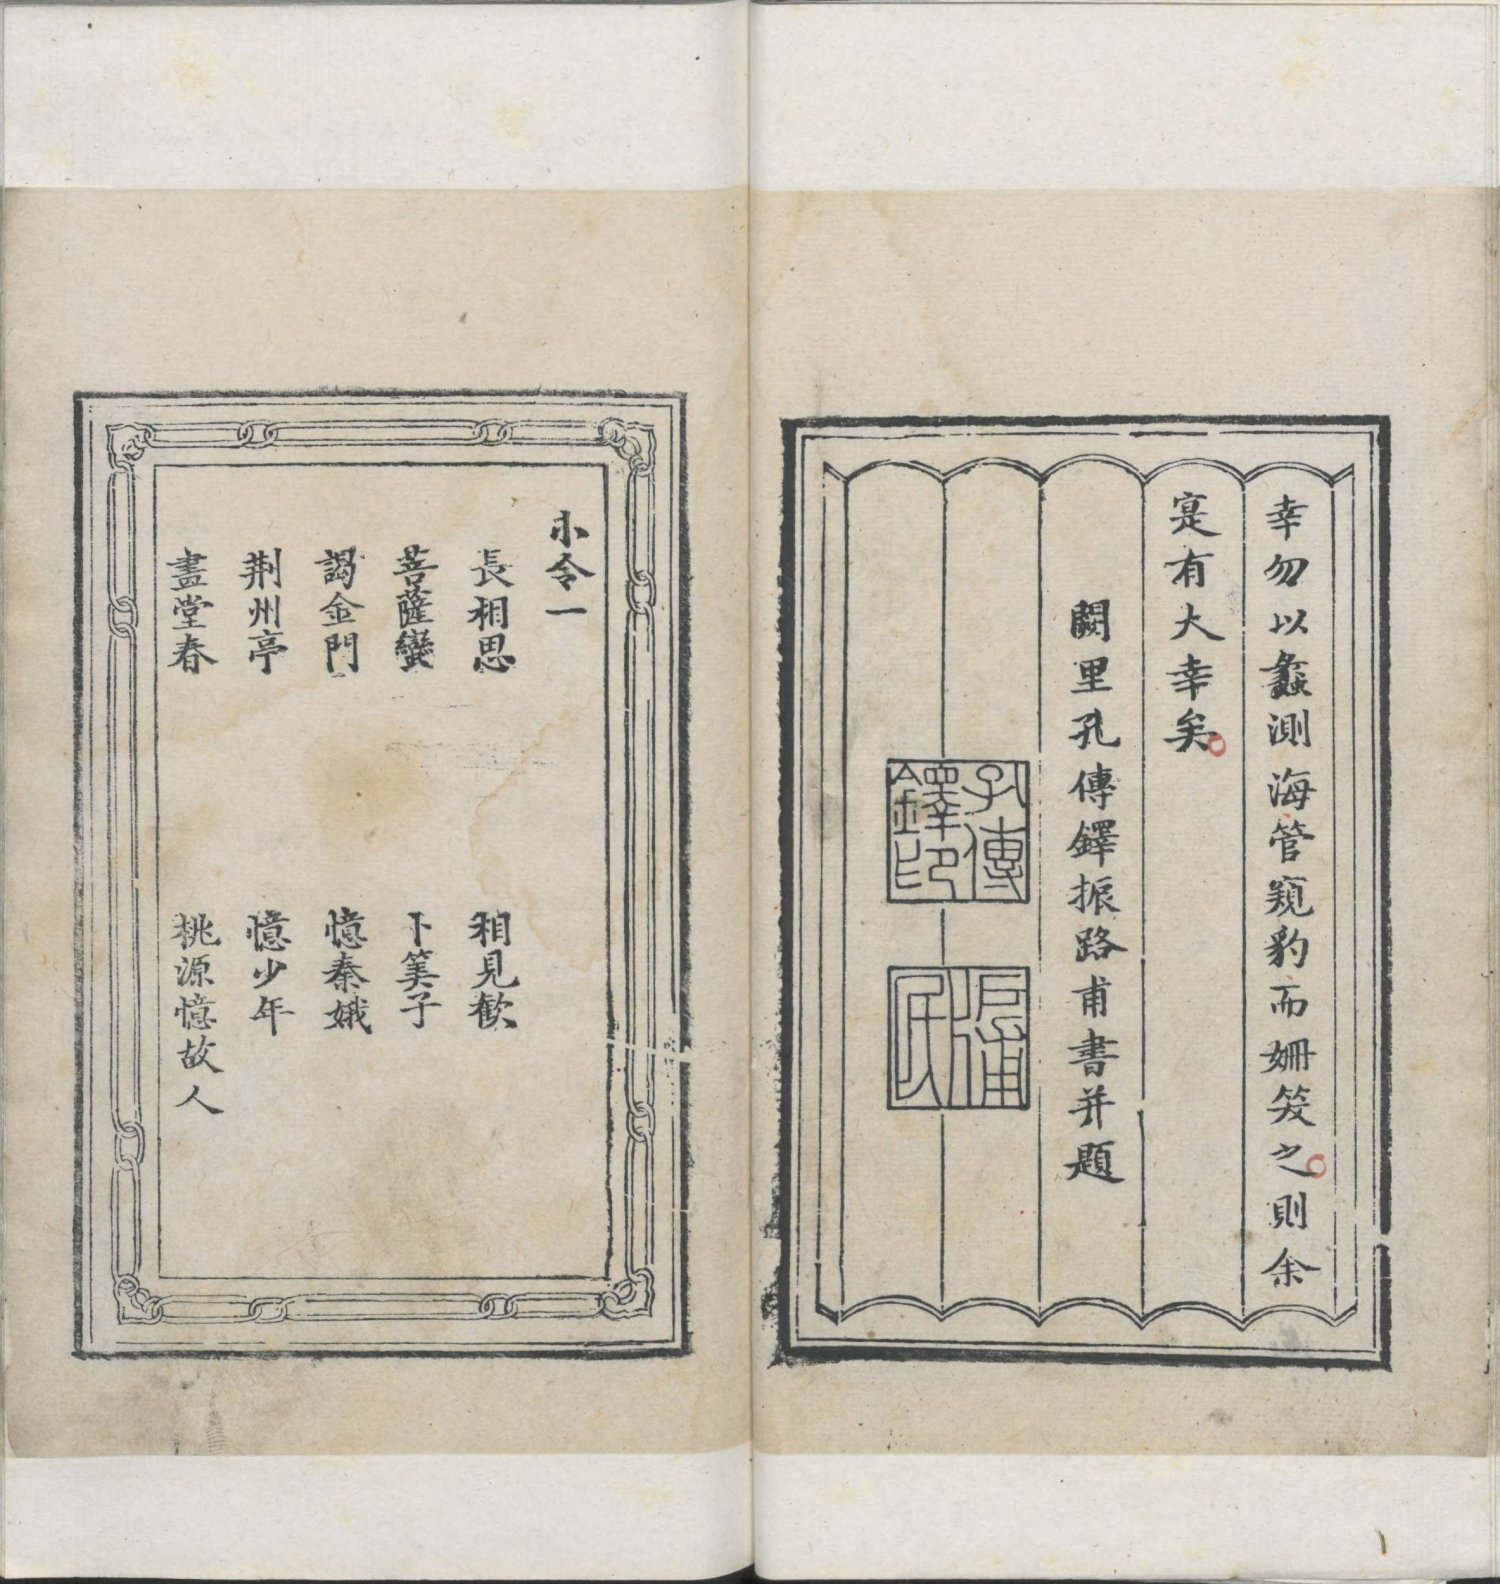 幸勿以蠡測海管窺豹而姍笑之則余
寔有大幸矣
闕里孔傳鐸振路甫書并題
孔傳
鐸印
振路
小令一
長相思
相見歡
菩薩蠻
卜筭子
謁金門
憶秦娥
荆州亭
憶少年
畫堂春
桃源憶故人